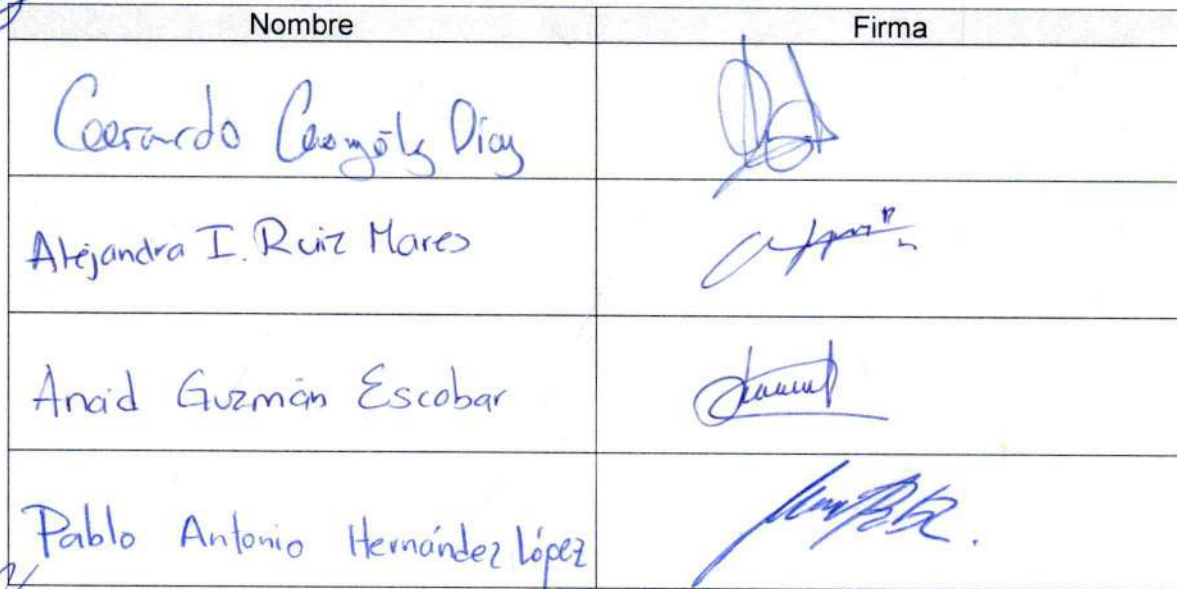 Nombre Firma
Gerardo González Díaz
Alejandra I. Ruiz Mares
Anaid Guzmán Escobar
Pablo Antonio Hernández López